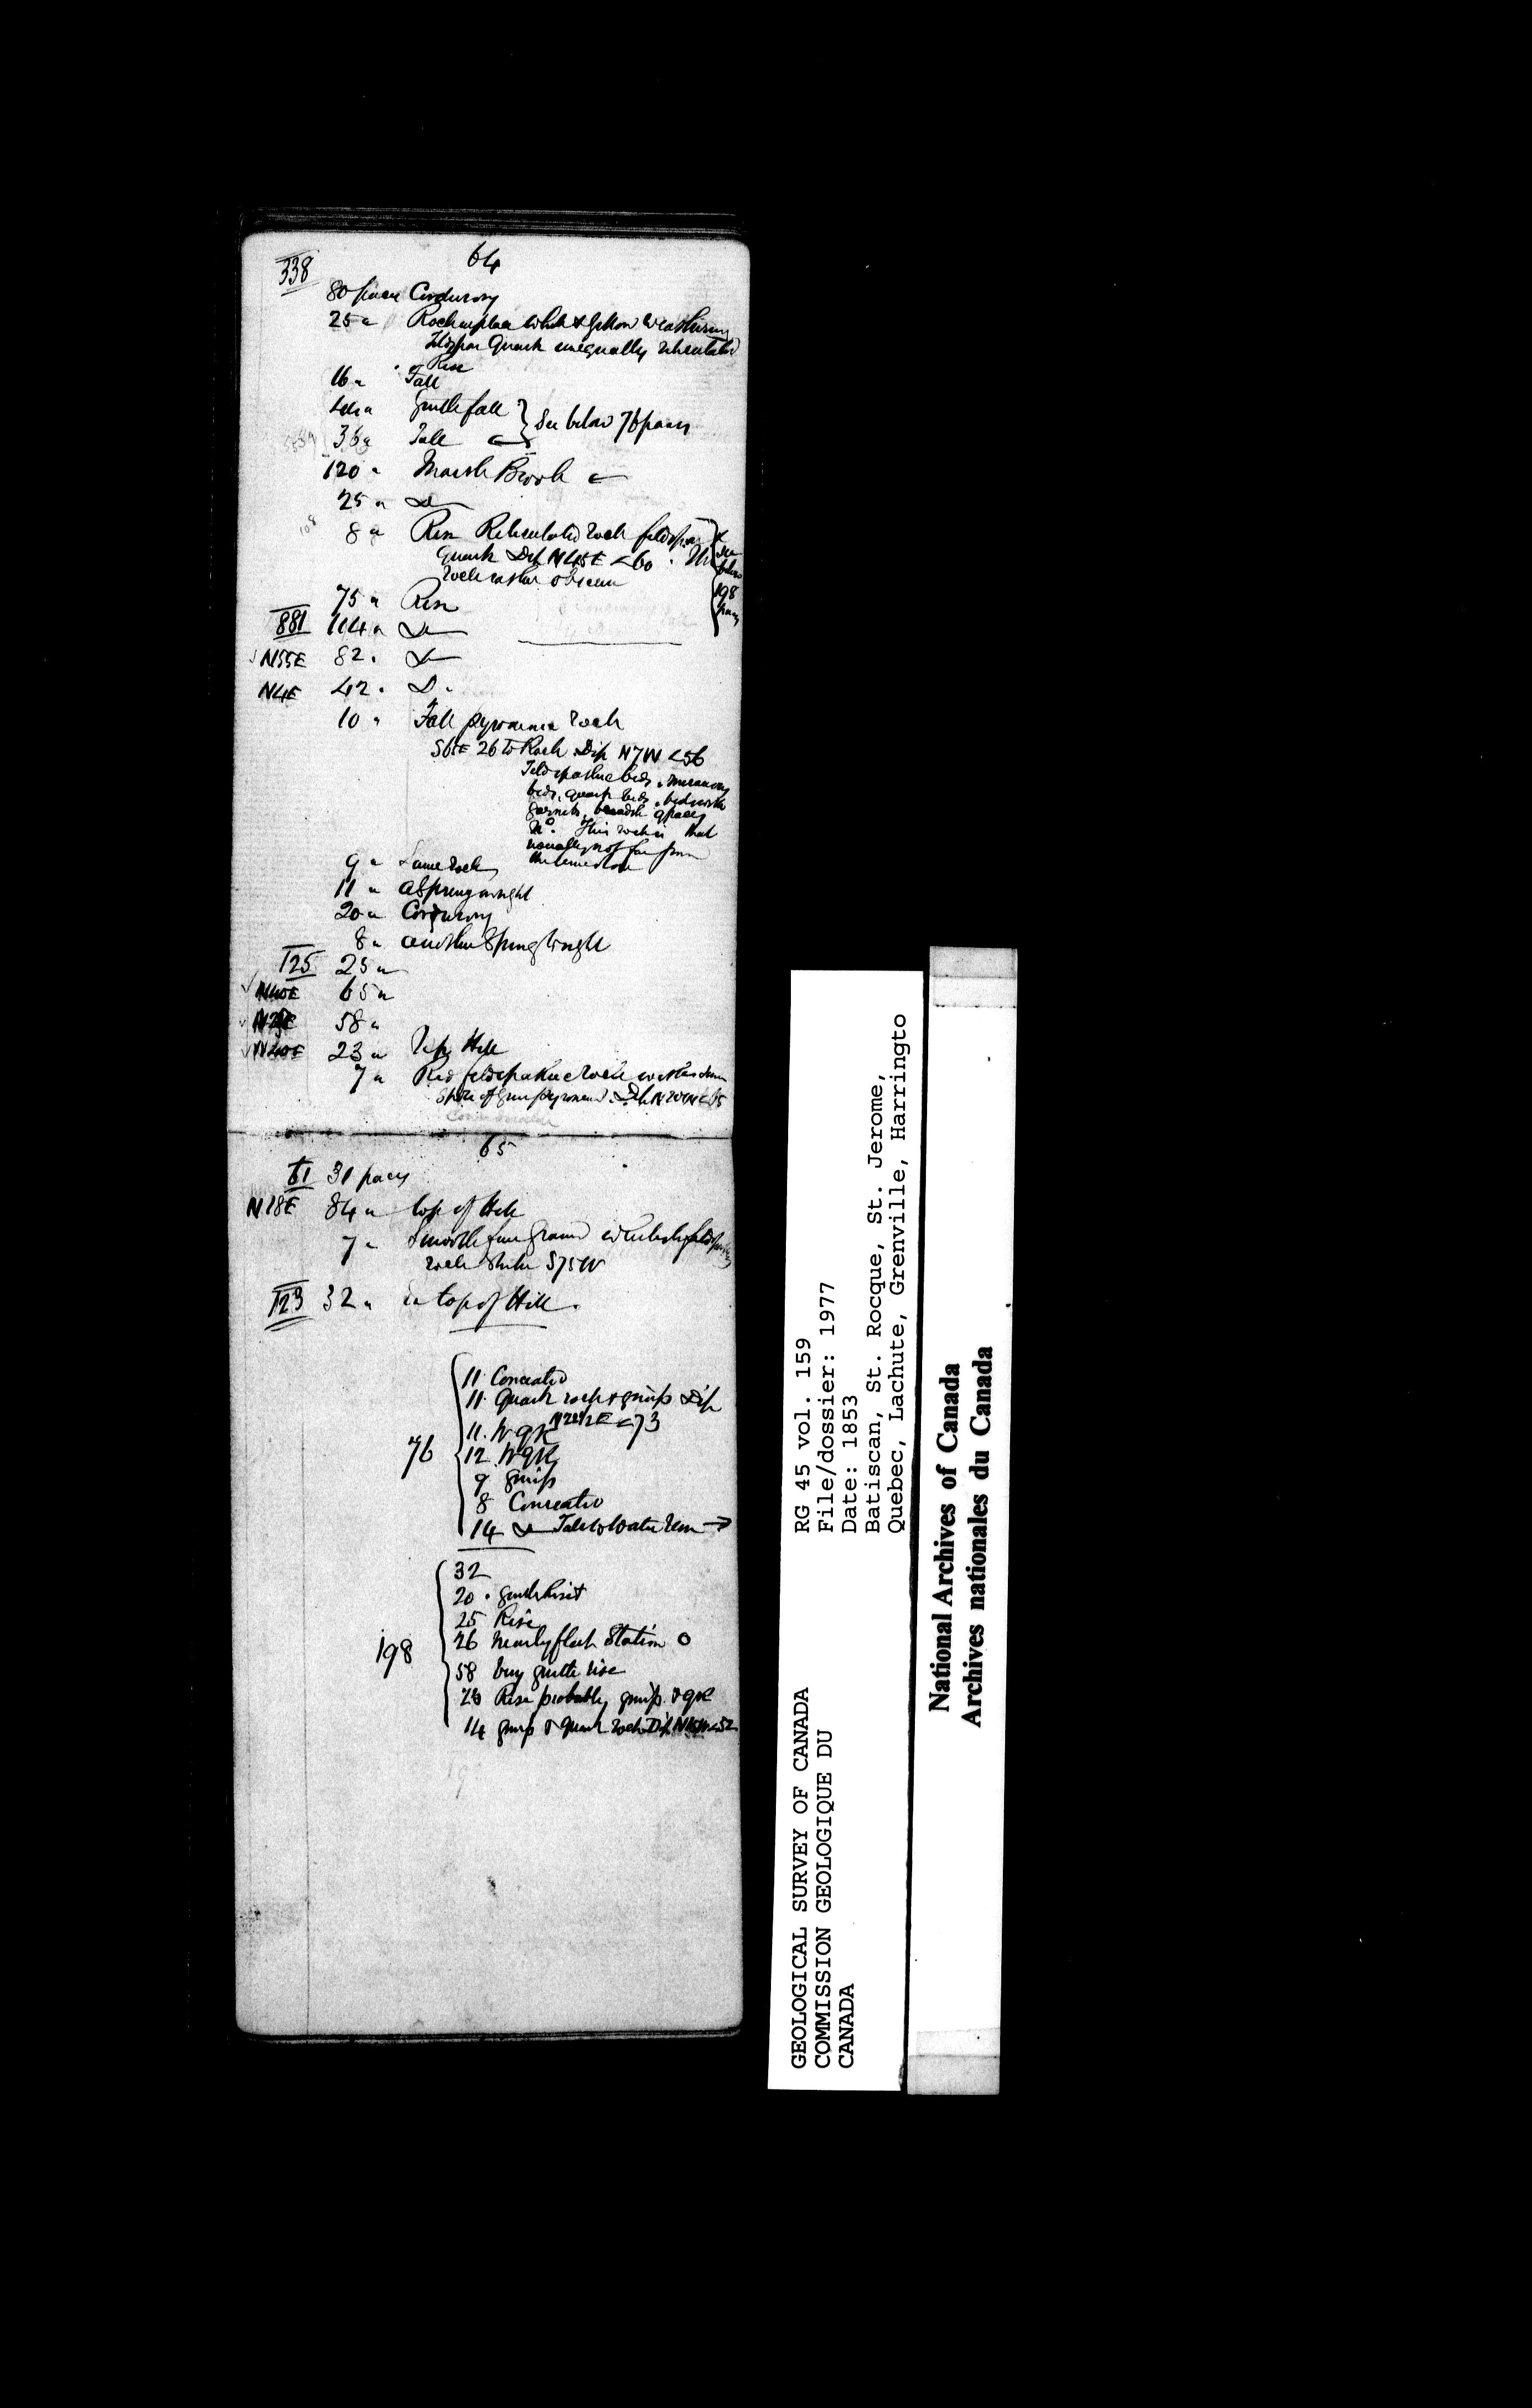 64
338
80 paces Corduroy
25 " Rock in place white & yellow weathering
felspar Quartz unequally reticulated
Rise
16 " Fall
44 " Gentle fall } See below 76 paces
36 " Fall
120 " Marsh Brook
25 " Do
8 " Rise Reticulated rock feldspar
quartz Dip N45E <60 . The
rock rather obscure
see below 198 paces
75 " Rise
881 114 " Do
N55E 82 " Do
N4E 42 " Do
10 " Fall pyroxenic rock
S6E 26 to Rock Dip N7W <56
Feldspathic beds, micaceous
beds, quartz beds, beds with
garnets, breadth 9 paces
This rock is that
usually not far from
the limestone
9 " Same rock
11 " a Spring on right
20 " Corduroy
8 " another Spring to right
125 25 "
N40E 65 "
58 "
N40E 23 " Top Hill
7 " Red feldspathic rock
65
61 31 paces
N18E 84 " top of Hill
7 " Smooth fine grained whitish feldspathic
rock strike S75W
123 32 " to top of Hill.
76
11 Concealed
11 Quartz rock & gneiss Dip
<73
11. W QR
12 W QR
9 gneiss
8 Concealed
14 Do Fall to Water Run →
198
32
20 . gentle
25 Rise
26 Nearly flat Station O
58 Very gentle rise
23 Rise probably gneiss & QR
14 gneiss & Quartz rock Dip <52
GEOLOGICAL SURVEY OF CANADA
COMMISSION GEOLOGIQUE DU
CANADA
RG 45 vol. 159
File/dossier: 1977
Date: 1853
Batiscan, St. Rocque, St. Jerome,
Quebec, Lachute, Grenville, Harringto
National Archives of Canada
Archives nationales du Canada